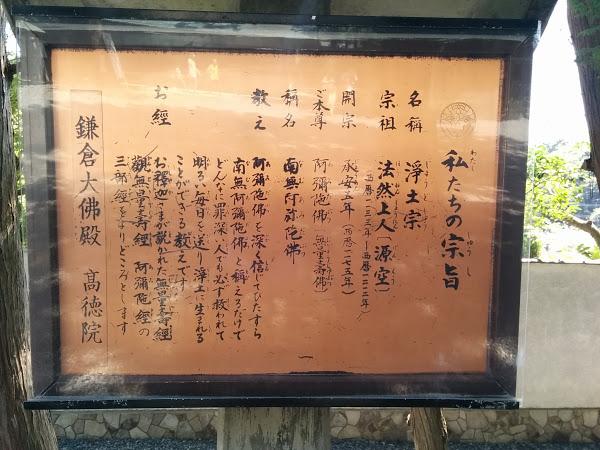 私たちの宗旨
名稱 浄土宗
宗祖 法然上人(源空)
(西暦一一三三年ー西暦一二一二年)
開宗 承安五年(西暦一一七五年)
ご本尊 阿彌陀佛(無量壽佛)
稱名 南無阿弥陀佛
教え 阿彌陀佛を深く信じてひたすら
南無阿彌陀佛と稱えるだけで
どんなに罪深い人でも必ず救われて
明るい毎日を送り浄土に生まれる
ことができる教えです
お経 お釋迦さまが説かれた無量壽經
觀無量壽經 阿彌陀經の
三部經をよりどころとします
鎌倉大佛殿 高徳院